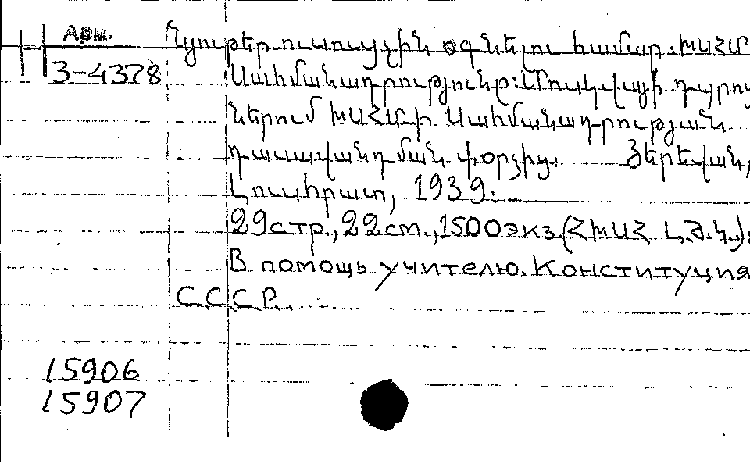 Арм.
Նյութեր ուսուցչին օգնելու համար. ԽՍՀՄ
3-4378 Սահմանադրությունը: Մոսկվայի դպրոց
ներում ԽՍՀՄԻ Սահմանադրության
դասավանդման փորձից. Յերեվան,
Լուսհրատ, 1939.
29стр., 22см., 1500экз. (ՀԽՍՀ Լ.Ժ.Կ.).
В помощь учителю. Конституция
СССР.
15906
15907